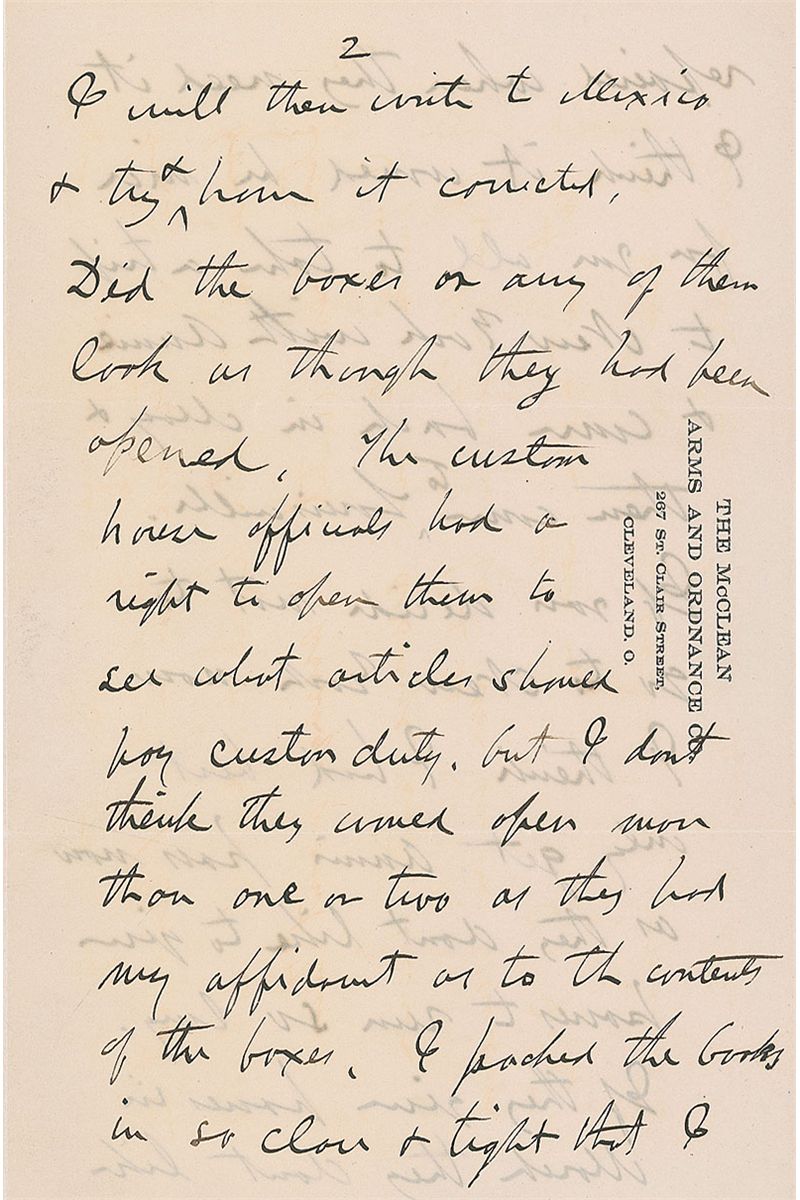 2
I will then write to Mexico
& try & have it corrected.
Did the boxes or any of them
look as though they had been
opened. The custom
house officials had a
right to open them to
see what articles should
pay custom duty. but I dont
think they would open more
than one or two as they had
my affidavit as to the contents
of the boxes. I packed the books
in so close & tight that I
THE McCLEAN
ARMS AND ORDNANCE CO.
267 ST. CLAIR STREET,
CLEVELAND, O.